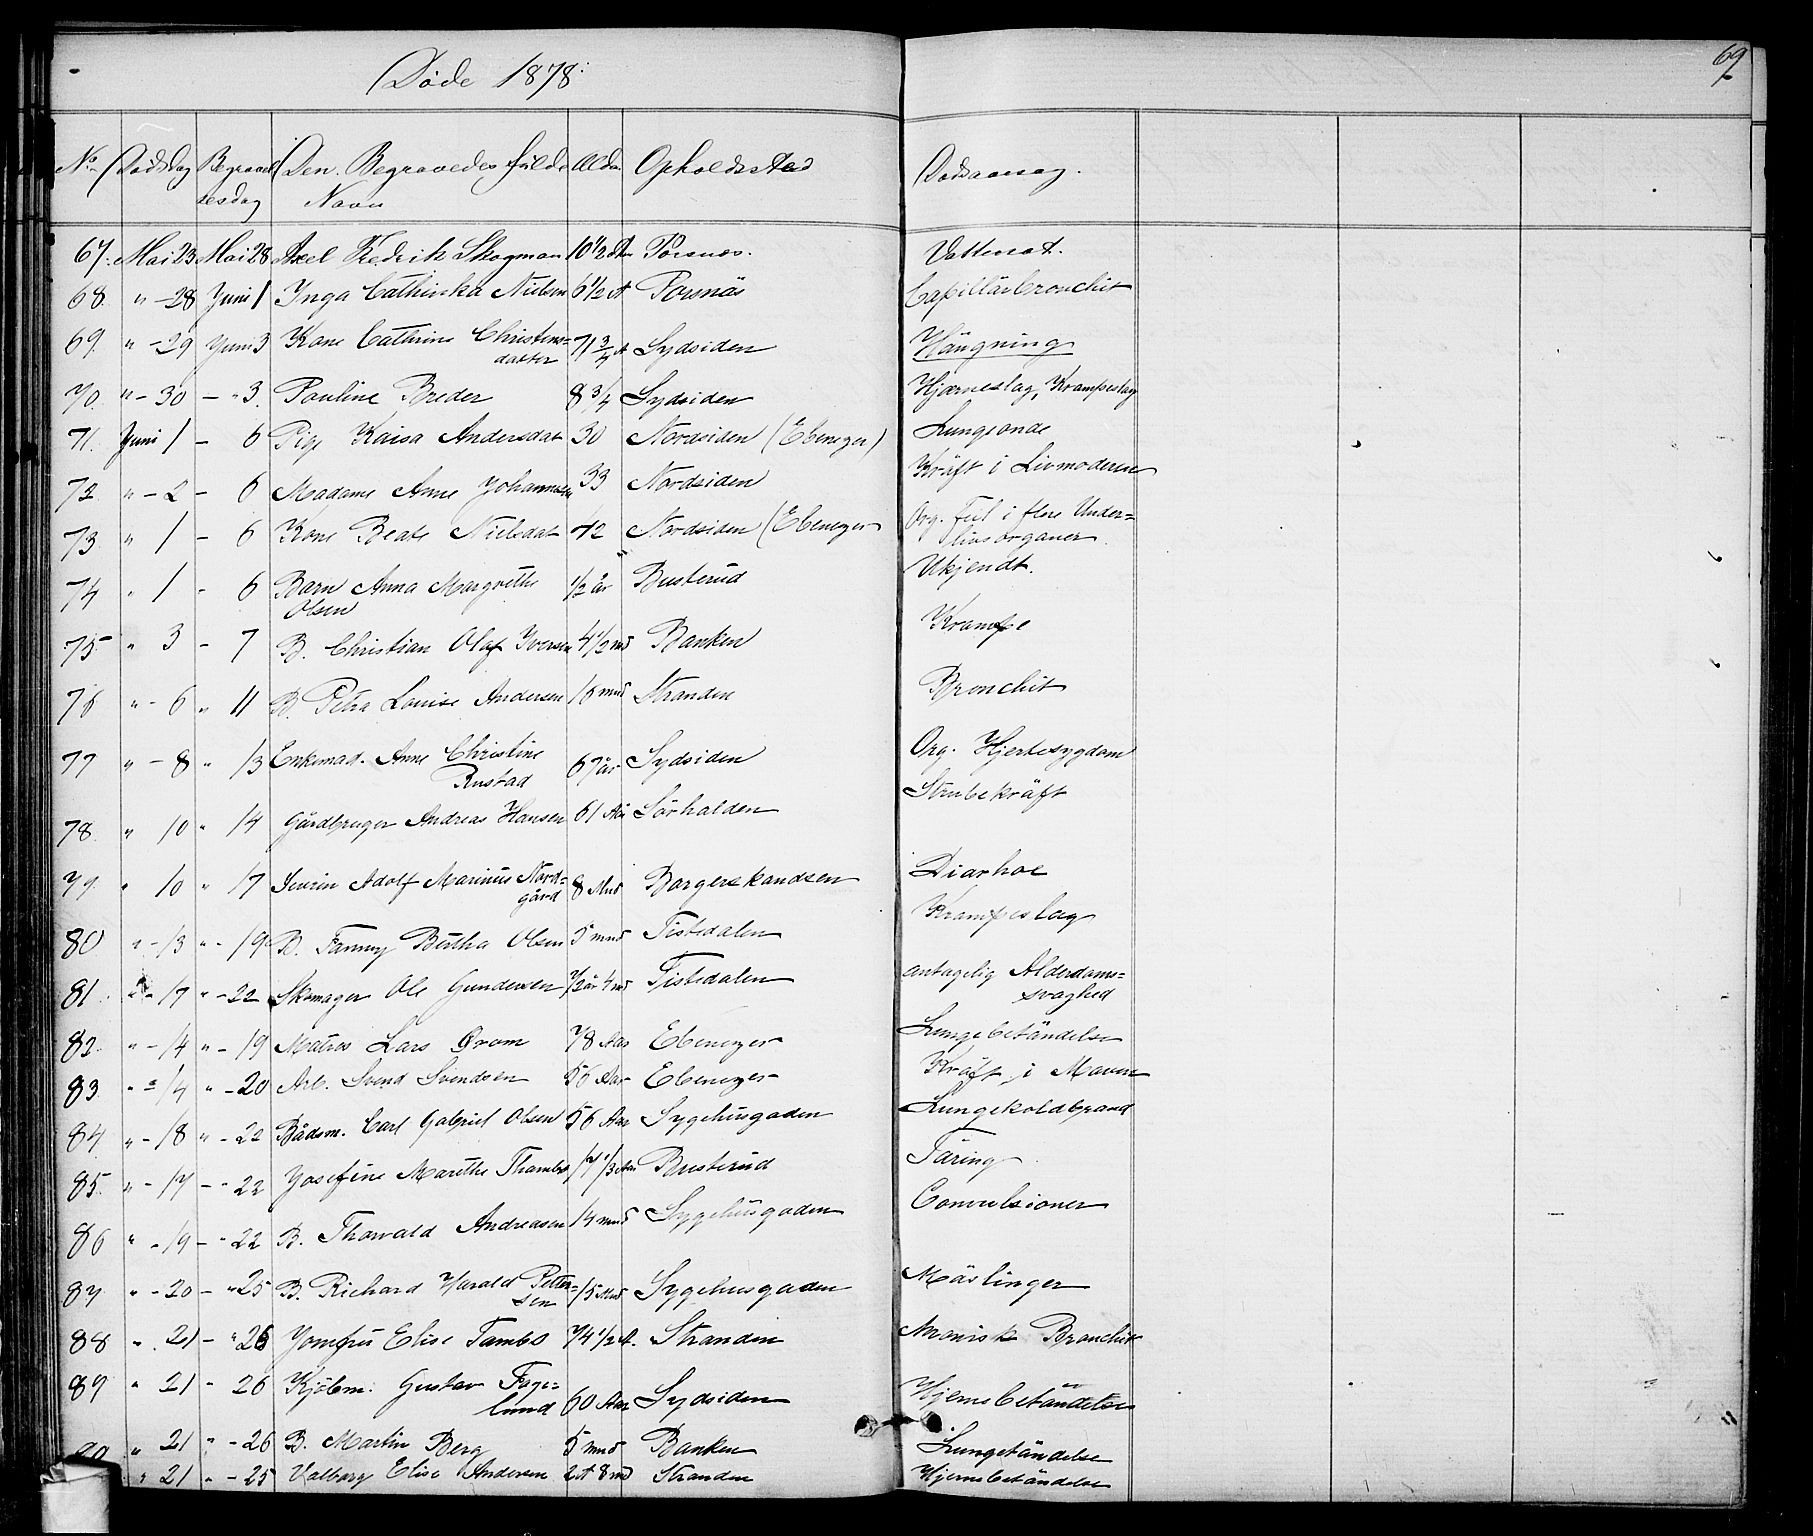 Döde 1878.
69
No Dødsdag Begravel Den Begravedes fulde Alder Opholdssted Dødsaarsag.
sesdag Navn
67. Mai 23 Mai 28 Axel Fredrik Skogman 10 1/2 Torsnæs. Vattersot.
68. " - 28 Juni 1 Inga Cathinka Nielsen 6 1/2 A Torsnäs Capillärbronchit
69. " - 29 Juni 3 Kone Cathrine Christens= 71 3/4 A Sydsiden Hängning
datter
70. " - 30 - " 3. Pauline Breder 8 3/4 Sydsiden Hjerneslag, Krampeslag
71. Juni 1 - 6 Pige Kaisa Andersdat 30 Nordsiden (Ebenezer) Lungeonde
72. " - 2 - 6 Madame Anne Johannesen 33 Nordsiden Kräft i Livmoderen
73. " 1 - 6 Kone Beate Nielsdat 42 Nordsiden (Ebenezer Org. Feil i flere Under=
livsorganer.
74 " 1 - 6 Barn Anna Margrethe 1/2 år Busterud Ukjendt.
Olsen
75 " 3 - 7 B. Christian Olaf Iversen 4 1/2 md Banken Krampe
76 " - 6 " 11 B. Petra Louise Andersen 16 mnd Stranden Bronchit
77 " - 8 " 13 Enkemad. Anne Christine 67 år Sydsiden Org. Hjertesygdom
Rustad
78. " 10 " 14 Gårdbruger Andreas Hansen 61 Aar Sörhalden Strubekräft
79. " 10 " 17 Severin Adolf Marinus Nord= 8 Mnd Borgerskandsen Diarhoe
gård
80 " - 13 " - 19 B. Fanny Bertha Olsen 5 mnd Tistedalen Krampeslag
81. " - 17 " - 22 Skomager Ole Gundersen 72 år 4 md Tistedalen antagelig Alderdoms=
svaghed
82. " - 14 " - 19 Matros Lars Ørom 78 Aar Ebenezer Lungebetändelse
83. " - 14 " - 20 Arb. Svend Svendsen 56 Aar Ebenezer Kräft i Maven
84. " - 18 " - 22 Bådsm. Carl Gabriel Olsen 56 Aar Sygehusgaden Lungekoldbrand
85. " - 17 - " 22 Josefine Marethe Thambs 17 1/3 Aar Busterud Täring
86 " - 19 - " 22 B. Thorvald Andreasen 14 mnd Sygehusgaden Convulsioner
87 " - 20 - " 25 B. Richard Harald Petter= 15 Mnd Sygehusgaden Mäslinger
sen
88 " . 21 - " 26 Jomfru Elise Tambs 74 1/2 A. Stranden Kronisk Bronchit
89 " 21 - 26 Kjöbm. Gustav Fage= 60 Aar Sydsiden Hjernebetändelse
lund
90 " 21 " - 26 B. Martin Berg 5 mnd Banken Lungetändelse
" 21 " - 25 Valborg Elise Andersen 2 A 8 md Stranden Hjernebetändelse